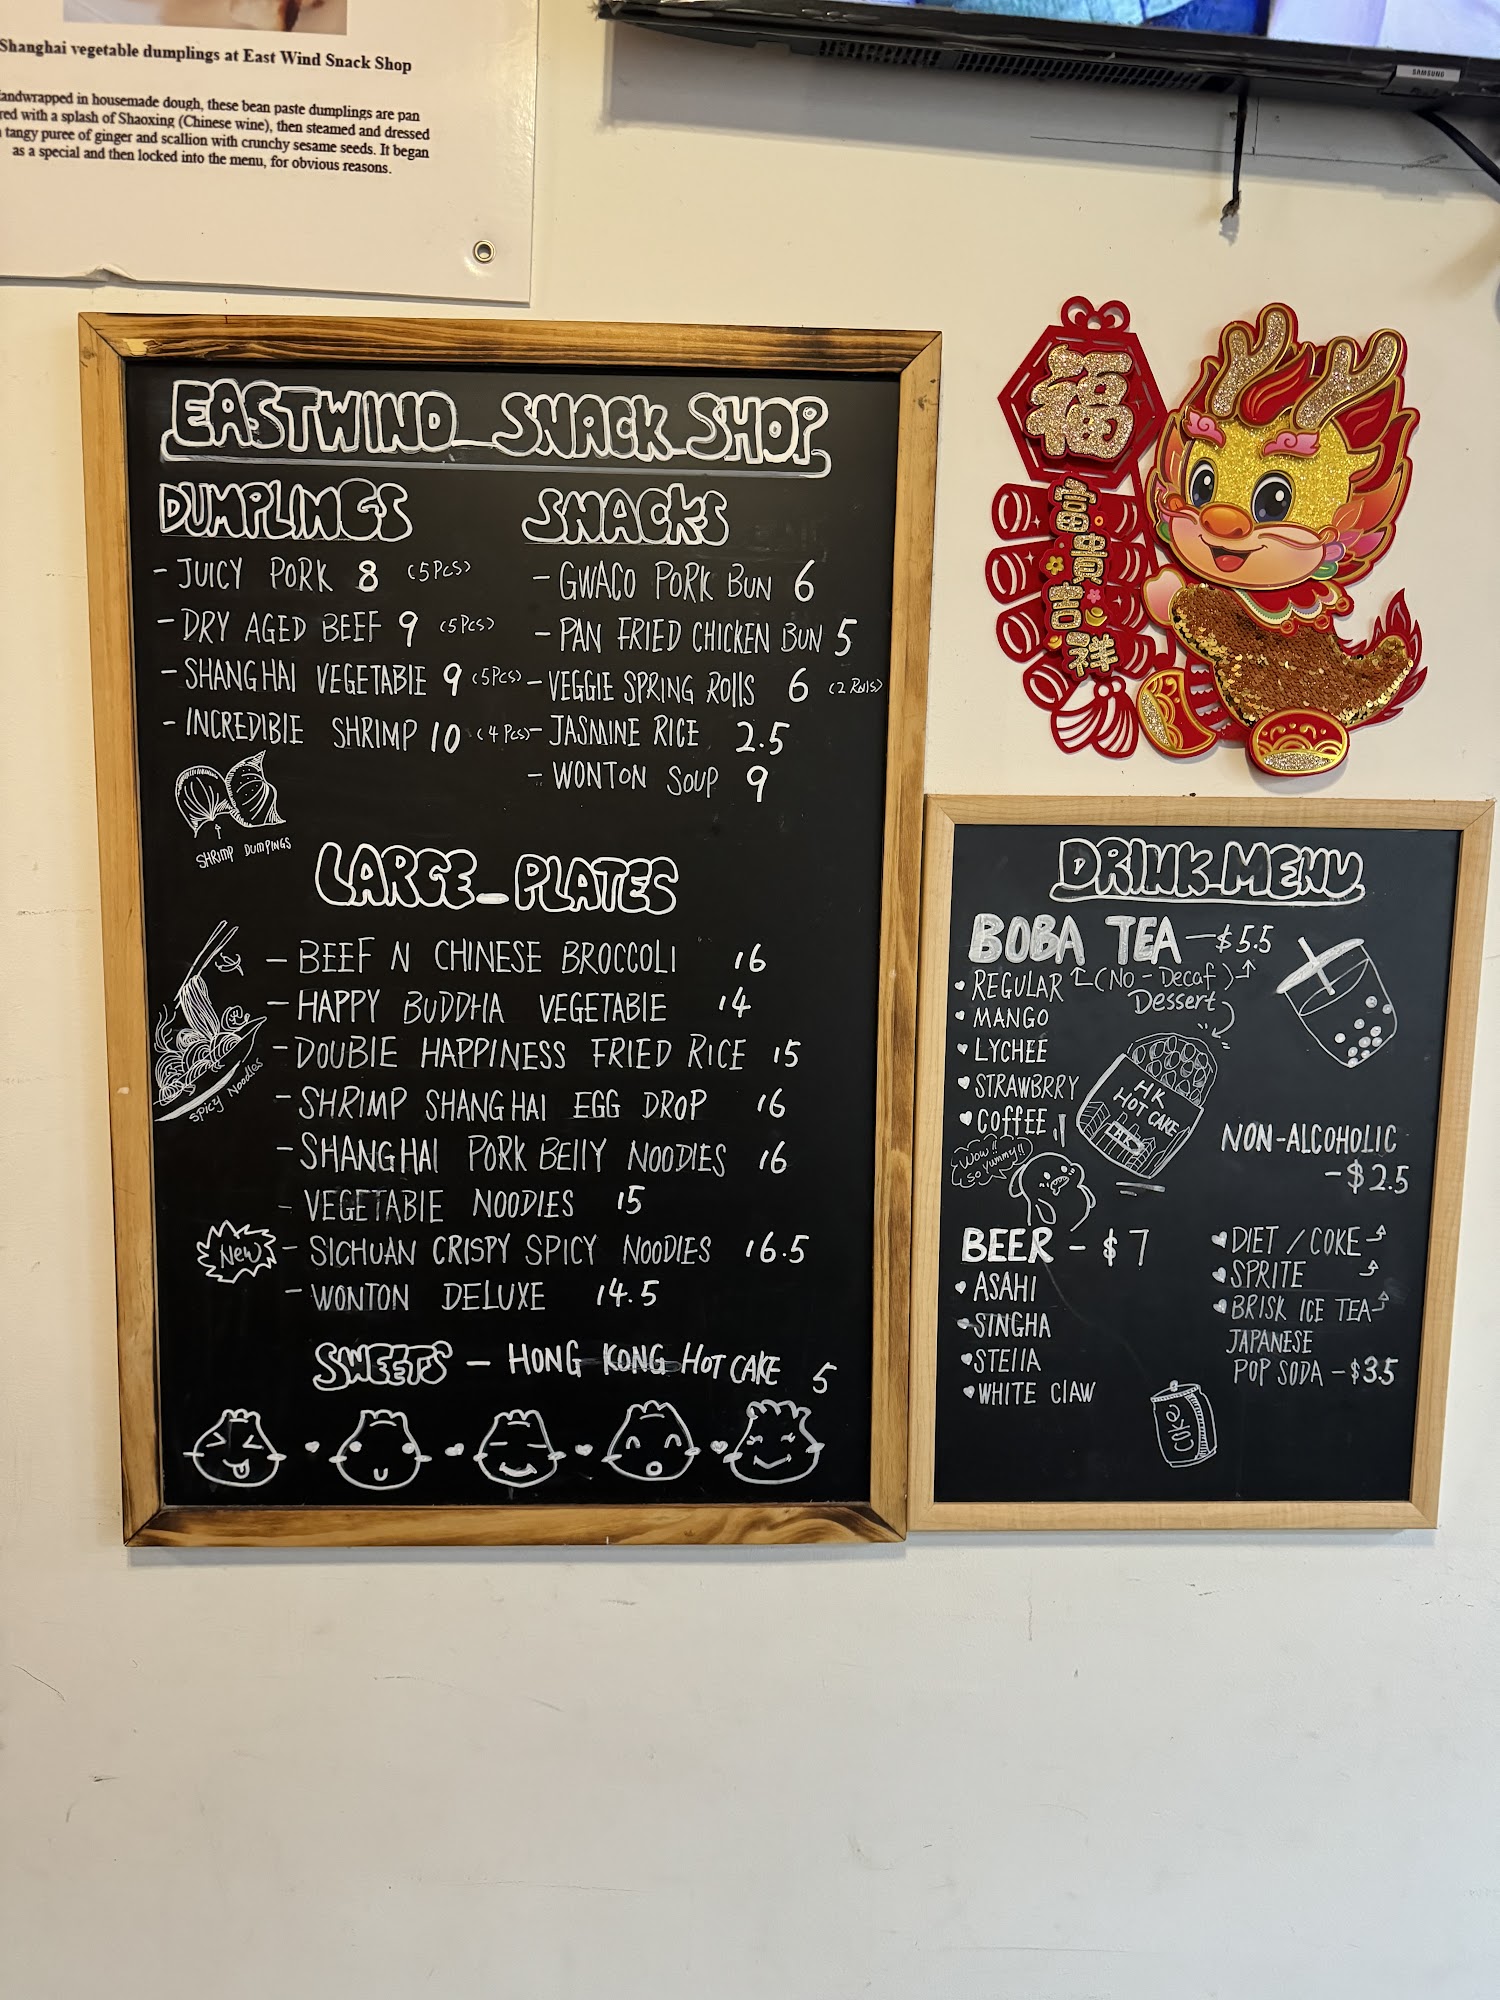 Shanghai vegetable dumplings at East Wind Snack Shop
andwrapped in housemade dough, these bean paste dumplings are pan
red with a splash of Shaoxing (Chinese wine), then steamed and dressed
tangy puree of ginger and scallion with crunchy sesame seeds. It began
as a special and then locked into the menu, for obvious reasons.
SAMSUNG
EASTWIND SNACK SHOP
DUMPLINGS
- JUICY PORK 8 (5Pcs)
- DRY AGED BEEF 9 (5Pcs)
- SHANGHAI VEGETABLE 9 (5Pcs)
- INCREDIBIE SHRIMP 10 (4 Pcs)
SHRIMP DUMPINGS
SNACKS
- GWACO PORK BUN 6
- PAN FRIED CHICKEN BUN 5
- VEGGIE SPRING ROllS 6 (2 Rolls)
- JASMINE RICE 2.5
- WONTON SOUP 9
LARGE-PLATES
- BEEF N CHINESE BROCCOLI 16
- HAPPY BUDDHA VEGETABLE 14
- DOUBIE HAPPINESS FRIED RICE 15
- SHRIMP SHANGHAI EGG DROP 16
- SHANGHAI PORK BEllY NOODIES 16
- VEGETABIE NOODIES 15
New - SICHUAN CRISPY SPICY NOODIES 16.5
- WONTON DELUXE 14.5
SPICY Noodles
SWEETS - HONG KONG HOT CAKE 5
福
富貴吉祥
DRINK MENU
BOBA TEA - $5.5
REGULAR (No - Decaf)
MANGO
LYCHEE
STRAWBRRY
COFFEE
Dessert
HK
HOT CAKE
HK
Wow!!
So yummy!!
BEER - $7
ASAHI
SINGHA
STEllA
WHITE ClAW
NON-ALCOHOLIC
- $2.5
DIET / COKE
SPRITE
BRISK ICE TEA
JAPANESE
POP SODA - $3.5
COKE